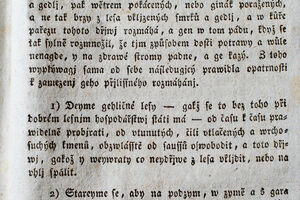 a gedlj, pak wětrem pokácených, nebo ginák poražených,
a ne tak brzy z lesa wklizených smrků a gedlj, a w kůře
pařezu tohoto dřjwj rozmáhá, a gen w tom pádu, když se
tak sylně rozmnožil, že tjm způsobem dosti potrawy a wůle
nenagde, y na zdrawé stromy padne, a ge kazý. S toho
wyplýwagj sama od sebe následugjcý prawidla opatrnosti
k zanezenj geho přjlišného rozmáhánj.
1) Deyme gehličné lesy — gakž se to bez toho při
dobrém lesnjm hospodářstwj státi má — od času k času pra-
widelně probjrati, od wtunutých, čili wtlačených a wrcho-
suchých kmenů, obzwláště od saussů oswobodit, a toto dřj-
wj, gakož y weywraty co neydřjwe z lesa wklidit, nebo na
uhlj spálit.
2) Stareyme se, aby na podzym, w zymě a s gara